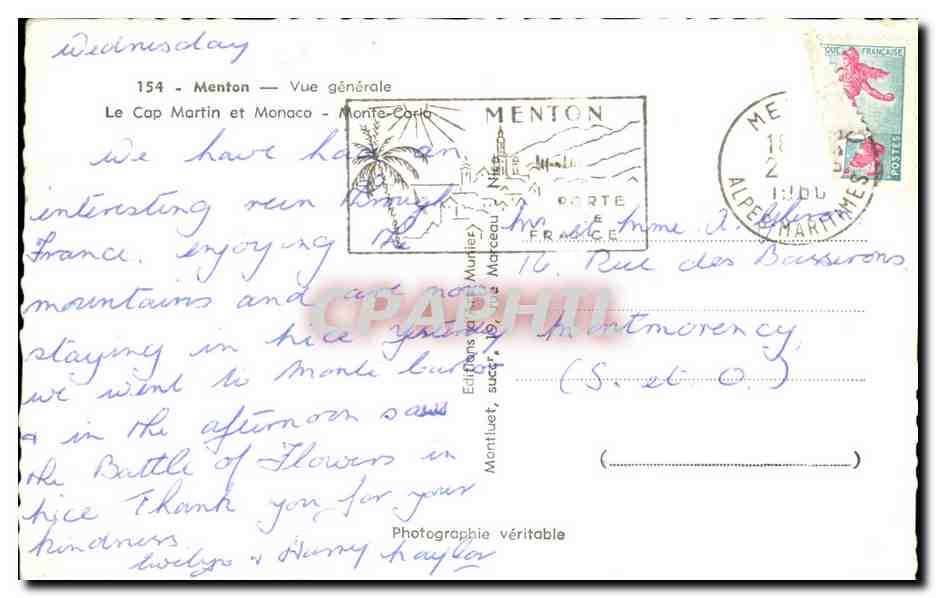 Wednesday
154 - Menton — Vue générale
Le Cap Martin et Monaco - Monte-Carlo
We have had an
interesting run through
France, enjoying the
mountains and are now
staying in Nice yesterday
we went to Monte Carlo
& in the afternoon saw
the Battle of Flowers in
Nice Thank you for your
kindness.
Evelyn & Harry Naylor
MENTON
PORTE
DE
FRANCE
ME
18
2
ALPES MARITIMES
QUE FRANÇAISE
POSTES
Mr et Mme A.
16 Rue des Basserons
Montmorency
(S. et O.)
Editions (A. Munier)
Montluet, succr, 19, rue Marceau Nice
CPAPHIL
Photographie véritable